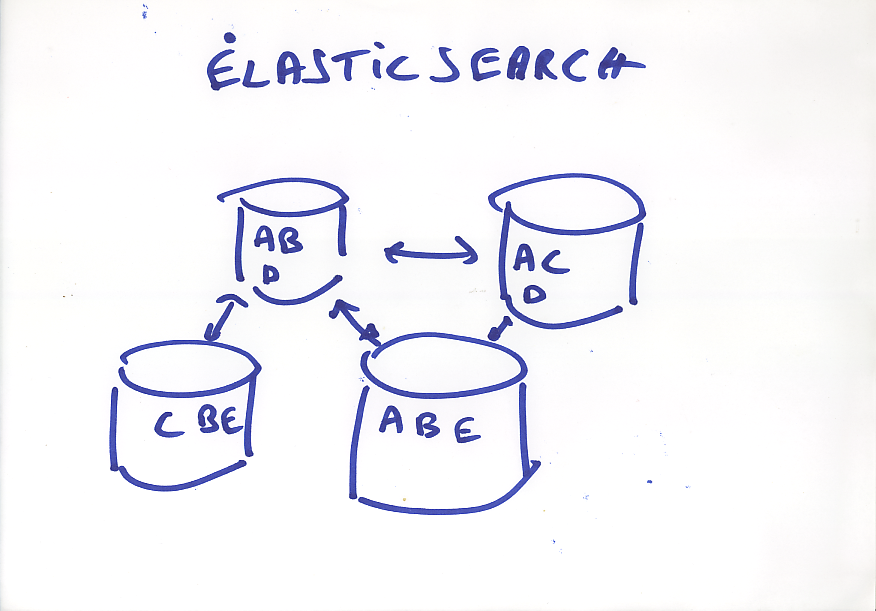 ELASTIC SEARCH
AB
D
AC
D
C BE
A B E